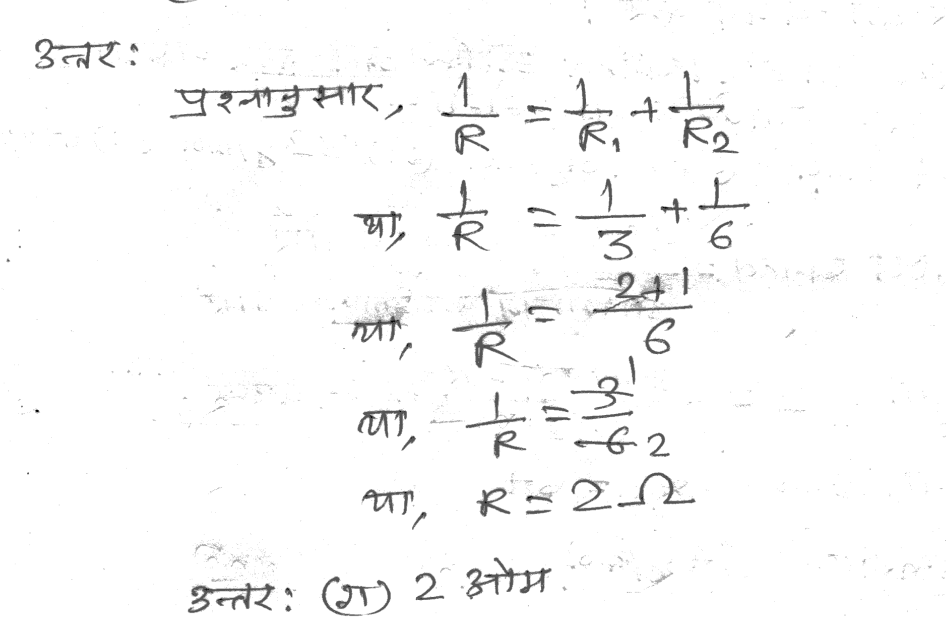 उत्तर:
प्रश्नानुसार, 1/R = 1/R₁ + 1/R₂
या, 1/R = 1/3 + 1/6
या, 1/R = 2+1/6
या, 1/R = 3 1/6 2
या, R = 2 Ω
उत्तर: (ग) 2 ओम